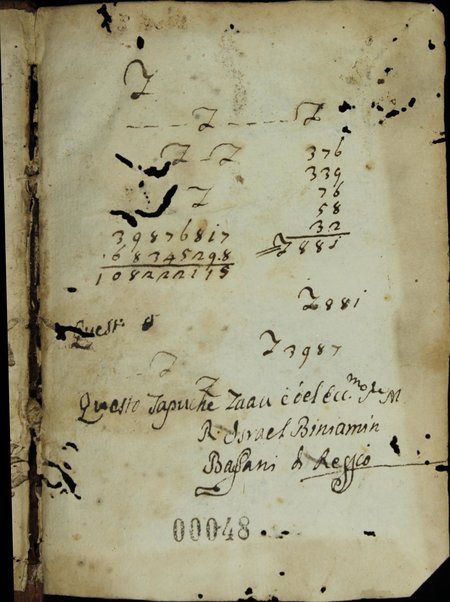 Z
Z Z
Z Z
Z
376
339
76
58
32
Z881
39876817
68345298
108222115
Z881
Questo
Z3987
Z Z
Questo Tapuche Zaau è del Ecc.mo S.r M
R. Israel Biniamin
Bassani di Reggio
00048